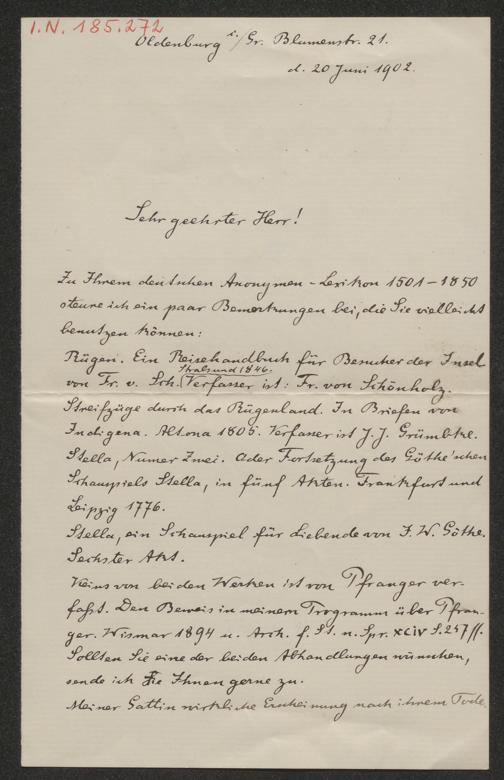 I.N. 185.272
Oldenburg i/Gr. Blumenstr. 21.
d. 20 Juni 1902.
Sehr geehrter Herr!
Zu Ihrem deutschen Anonymen-Lexikon 1501-1850
steure ich ein paar Bemerkungen bei, die Sie vielleicht
benutzen können:
Rügen. Ein Reisehandbuch für Besucher der Insel
Stralsund 1846.
von Fr. v. Sch. Verfasser ist: Fr. von Schönholz.
Streifzüge durch das Rügenland. In Briefen von
Indigena. Altona 1805. Verfasser ist J. J. Grümbke.
Stella, Numer Zwei. Oder Fortsetzung des Göthe'schen
Schauspiels Stella, in fünf Akten. Frankfurt und
Leipzig 1776.
Stella, ein Schauspiel für Liebende von J. W. Göthe.
Sechster Akt.
Keins von beiden Werken ist von Pfranger ver-
faßt. Den Beweis in meinem Programm über Pfran-
ger. Wismar 1894 u. Arch. f. St. n. Spr. XCIV S. 247 ff.
Sollten Sie eine der beiden Abhandlungen wünschen,
sende ich Sie Ihnen gerne zu.
Meiner Gattin wirkliche Erscheinung nach ihrem Tode.